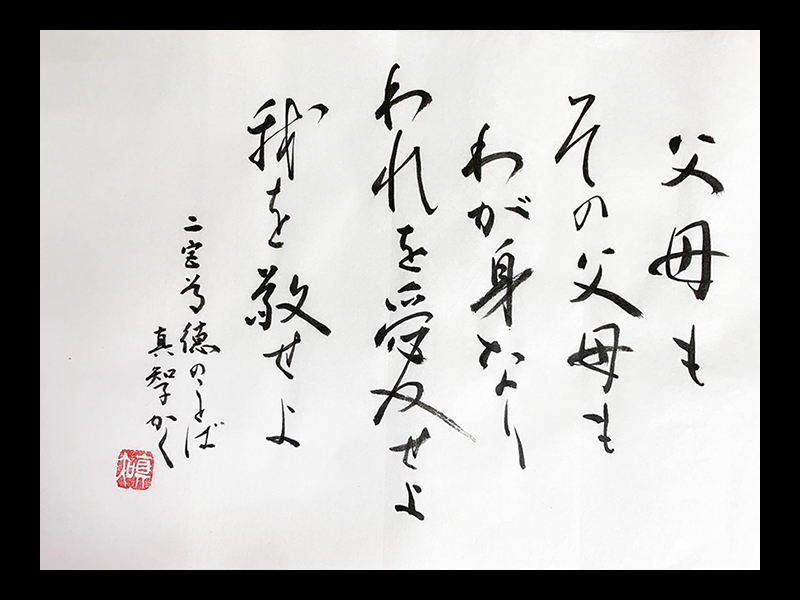 父母も
その父母も
わが身なり
われを愛せよ
我を敬せよ
二宮尊徳のことば
真智子かく